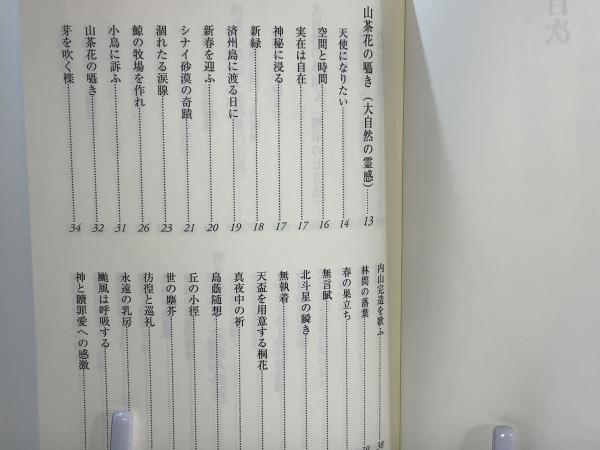 目次
山茶花の囁き（大自然の霊感）……13
天使になりたい……14
空間と時間……16
実在は自在……17
神秘に浸る……17
新緑……18
済州島に渡る日に……19
新春を迎ふ……20
シナイ砂漠の奇蹟……21
涸れたる涙腺……23
鯨の牧場を作れ……26
小鳥に訴ふ……31
山茶花の囁き……32
芽を吹く櫟……34
内山完造を歌ふ……38
林間の落葉……39
春の巣立ち……
無言賦……
北斗星の瞬き……
無執着……
天盃を用意する桐花……
真夜中の祈……
島蔭随想……
丘の小径……
世の塵芥……
彷徨と巡礼……
永遠の乳房……
颱風は呼吸する……
神と贖罪愛への感激……